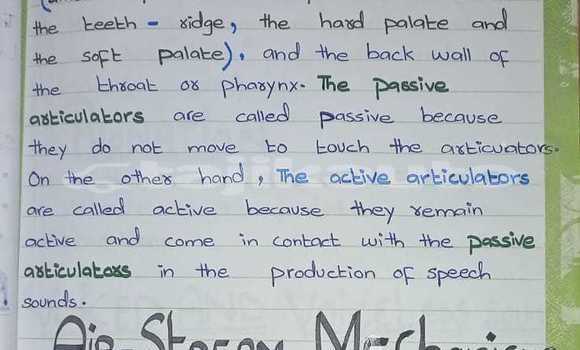 the teeth - ridge, the hard palate and
the soft palate), and the back wall of
the throat or pharynx. The passive
articulators are called passive because
they do not move to touch the articuators.
On the other hand, The active articulators
are called active because they remain
active and come in contact with the passive
articulators in the production of speech
sounds.